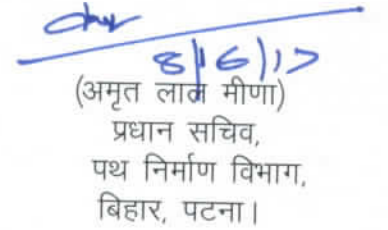 8/6/17
(अमृत लाल मीणा)
प्रधान सचिव,
पथ निर्माण विभाग,
बिहार, पटना।